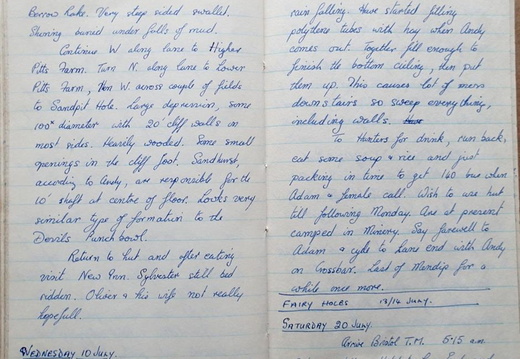 Berrow Rake. Very steep sided swallet.
Shoring buried under falls of mud.
Continue W along lane to Higher
Pitts Farm. Turn N. along lane to Lower
Pitts Farm, then W. across couple of fields
to Sandpit Hole. Large depression, some
100' diameter with 20' cliff walls on
most sides. Heavily wooded. Some small
openings in the cliff foot. Sandhurst,
according to Andy, are responsible for the
10' shaft at centre of floor. Looks very
similar type of formation to the
Devils Punchbowl.
Return to hut and after eating
visit New Inn. Sylvester still bed
ridden. Oliver & his wife not really
hopefull.
WEDNESDAY 10 JULY.
rain falling. Have started filling
polydene tubes with hey when Andy
comes out. Together fill enough to
finish the bottom ceiling, then put
them up. This causes lot of mess
downstairs so sweep everything
including walls.
To Hunters for drink, run back,
eat some soup & rice and just
packing in time to get 140 bus when
Adam & female call. Wish to use hut
till following Monday. Are at present
camped in Minery. Say farewell to
Adam & cycle to Lane End with Andy
on Crossbar. Last of Mendip for a
while once more.
FAIRY HOLES 13/14 JULY.
SATURDAY 20 JULY.
Arrive Bristol T.M. 5.45 am.